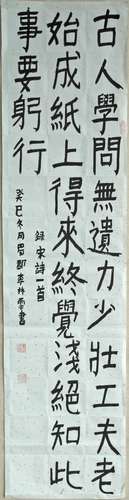 古人學問無遺力少壯工夫老
始成紙上得來終覺淺絕知此
事要躬行
錄宋詩一首
癸巳冬月
書